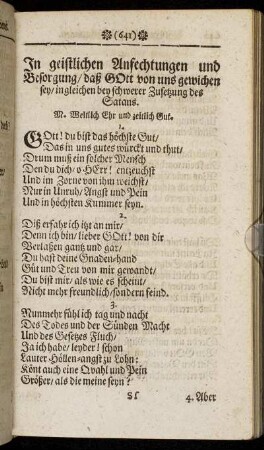 (641)
In geistlichen Anfechtungen und
Besorgung/ daß GOtt von uns gewichen
sey/ ingleichen bey schwerer Zusetzung des
Satans.
M. Weltlich Ehr und zeitlich Gut.
1.
GOtt! du bist das höchste Gut/
Das in uns gutes würckt und thut/
Drum muß ein solcher Mensch
Den du dich/ o HErr! entzeuchst
Und im Zorne von ihm weichst/
Nur in Unruh/ Angst und Pein
Und in höchsten Kummer seyn.
2.
Diß erfahr ich itzt an mir/
Denn ich bin/ lieber GOtt! von dir
Verlaßen gantz und gar/
Du hast deine Gnaden-hand
Güt und Treu von mir gewandt/
Du bist mir/ als wie es scheint/
Nicht mehr freundlich/ sondern feind.
3.
Nunmehr fühl ich tag und nacht
Des Todes und der Sünden Macht
Und des Gesetzes Fluch/
Ja ich habe/ leyder! schon
Lauter Höllen-angst zu Lohn:
Könt auch eine Qvahl und Pein
Größer/ als die meine seyn?
Ss
4. Aber